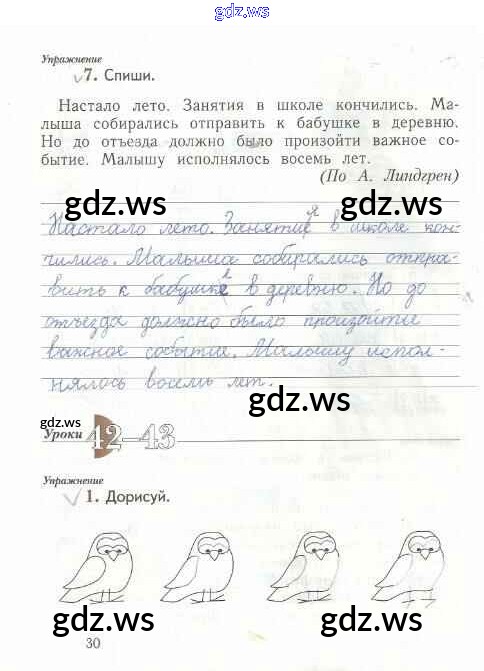 gdz.ws
Упражнение
7. Спиши.
Настало лето. Занятия в школе кончились. Ма-
лыша собирались отправить к бабушке в деревню.
Но до отъезда должно было произойти важное со-
бытие. Малышу исполнялось восемь лет.
(По А. Линдгрен)
gdz.ws gdz.ws
я
Настало лето. Занятие в школе кон-
чились. Малыша собирались отпра-
вить к бабушке в деревню. Но до
отъезда должно было произойти
важное событие. Малышу испол-
нялось восемь лет.
gdz.ws
gdz.ws
Уроки 42–43
Упражнение
1. Дорисуй.
gdz.ws gdz.ws gdz.ws
30